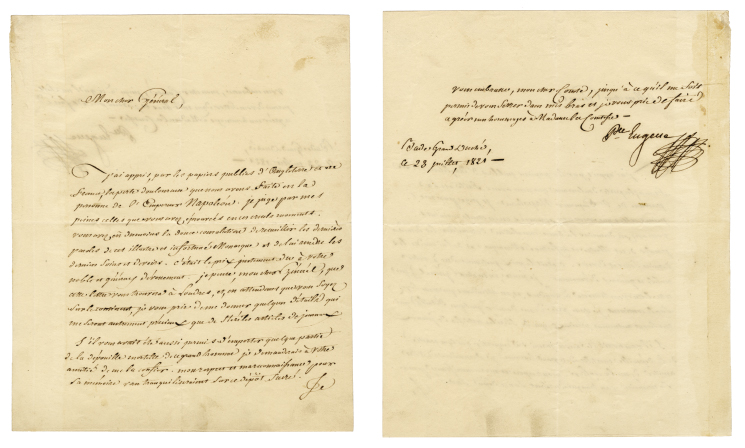 Mon cher Général,
J'ai appris, par les papiers publics d'Angleterre et de
France, la perte douloureuse que nous avons faite en la
personne de l'Empereur Napoléon. je juge par mes
peines celles que vous avez éprouvées en ces cruels moments.
vous avez eu du moins la douce consolation de recueillir les dernières
paroles de cet illustre et infortuné Monarque et de lui rendre les
derniers soins et devoirs. c'était le prix dû à votre
noble et généreux dévouement. je pense, mon cher Général, que
cette lettre vous trouvera à Londres, et, en attendant que vous soyez
sur le continent, je vous prie de me donner quelques détails qui
me seront autrement précieux que de stériles articles de journaux
S'il vous avait été aussi permis d'emporter quelque partie
de la dépouille mortelle de ce grand homme je demanderais à votre
amitié de me la confier. mon respect et ma reconnaissance pour
sa mémoire veilleraient sur ce dépôt sacré.
Je
vous embrasse, mon cher Comte, jusqu'à ce qu'il me soit
permis de vous serrer dans mes bras et je vous prie de faire
agréer mes hommages à Madame la Comtesse
Eugene
Bade, Grand Duché,
le 23 juillet, 1821